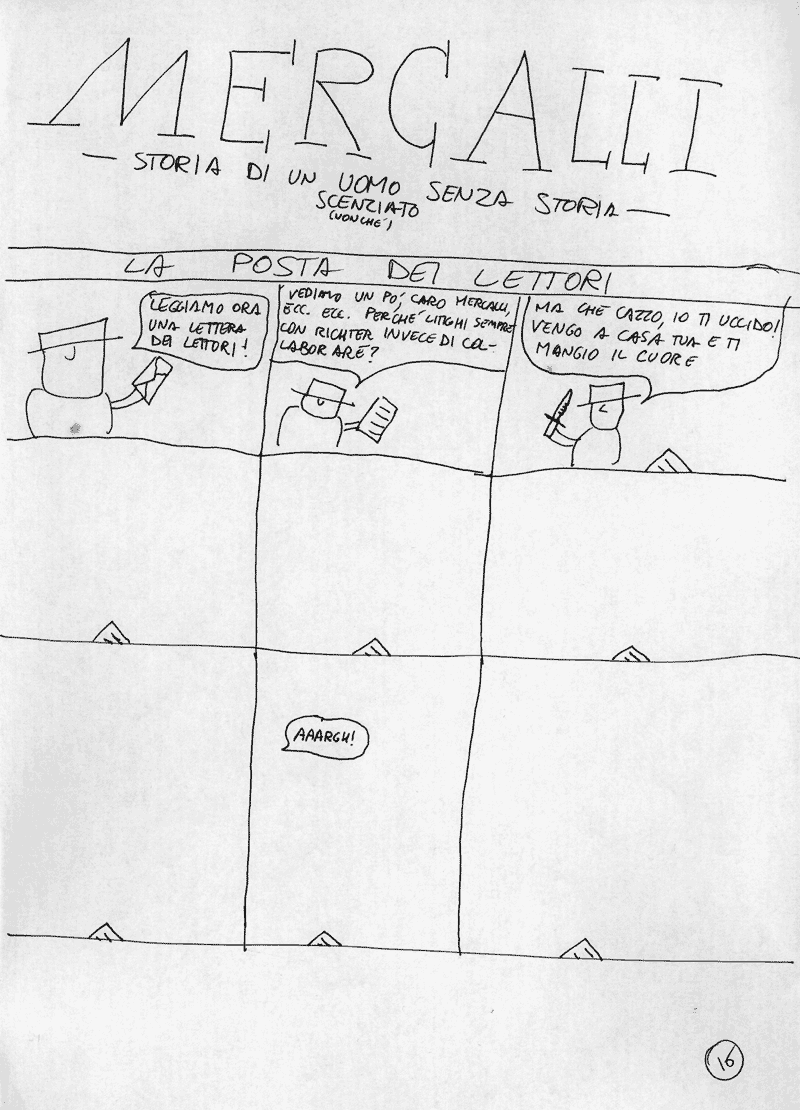 MERCALLI
— STORIA DI UN UOMO SENZA STORIA —
SCENZIATO
(NONCHÉ)
LA POSTA DEI LETTORI
LEGGIAMO ORA
UNA LETTERA
DEI LETTORI!
VEDIAMO UN PO', CARO MERCALLI,
ECC. ECC. PERCHÉ LITIGHI SEMPRE
CON RICHTER INVECE DI COL-
LABORARE?
MA CHE CAZZO, IO TI UCCIDO!
VENGO A CASA TUA E TI
MANGIO IL CUORE
AAARGH!
16